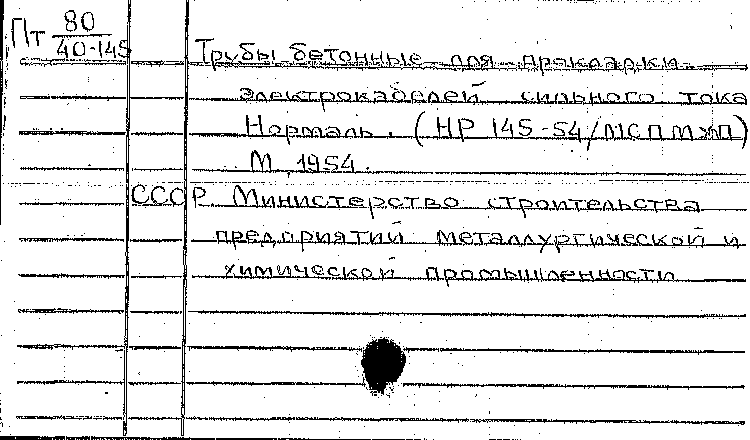 Пт 80/40-145
Трубы бетонные для прокладки
электрокабелей сильного тока
Нормаль. (НР 145-54/МСПМХП)
М., 1954.
СССР. Министерство строительства
предприятий металлургической и
химической промышленности